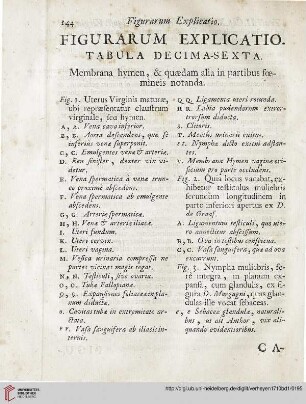 144 Figurarum Explicatio.
FIGURARUM EXPLICATIO.
TABULA DECIMA-SEXTA.
Membrana hymen, & quædam alia in partibus fœ-
mineis notanda.
Fig. 1. Uterus Virginis maturæ,
ubi repræsentatur claustrum
virginale, seu hymen.
A, a. Vena cava inferior.
B, Aorta descendens, quæ se
inferius venæ superponit.
C, C. Emulgentes venæ & arteriæ.
D. Ren sinister, dexter vix vi-
detur.
Vena spermatica à venæ trun-
co proxime abscedens.
F. Vena spermatica ab emulgente
abscedens.
G, G. Arteriæ spermaticæ.
H, H. Venæ & arteriæ iliacæ.
I. Uteri fundum.
K. Uteri cervix.
L. Uteri vagina.
M. Vesica urinaria compressa ne
partes vicinas magis tegat.
N, N. Testiculi, sive ovaria.
O, O. Tubæ Fallopianæ.
Expansiones foliaceæ in pla-
num deductæ.
Cavitas tubæ in extremitate ar-
ctata.
Vasa sanguifera ab iliacis in-
ternis.
Q Q. Ligamenta uteri rotunda.
R R. Labia pudendorum
trorsum diducta.
S. Clitoris.
T. Meatus urinarii exitus.
Nymphæ dicto exitui adstan-
tes.
V. Membrana Hymen vaginæ ori-
ficium pro parte occludens.
Fig. 2. Quia locus vacabat, ex-
hibetur testiculus muliebris
secundum longitudinem in
parte inferiori apertus ex D.
de Graef.
A. Ligamentum testiculi, quo ute-
ro annectitur abscissum.
B, B. Ova in testibus conspicua.
C, C. Vasa sanguifera, quæ ad ova
excurrunt.
Fig. 3. Nympha muliebris, fe-
re integra, in planum expan-
sa, cum glandulis, ex fi-
gura D. Morgagni, quas glan-
dulas ille vocat sebaceas.
c, c Sebaceæ glandulæ, naturali-
bus, ut ait Author, vix ali-
quando evidentioribus.
C A-
UNIVERSITÄTS-
BIBLIOTHEK
HEIDELBERG